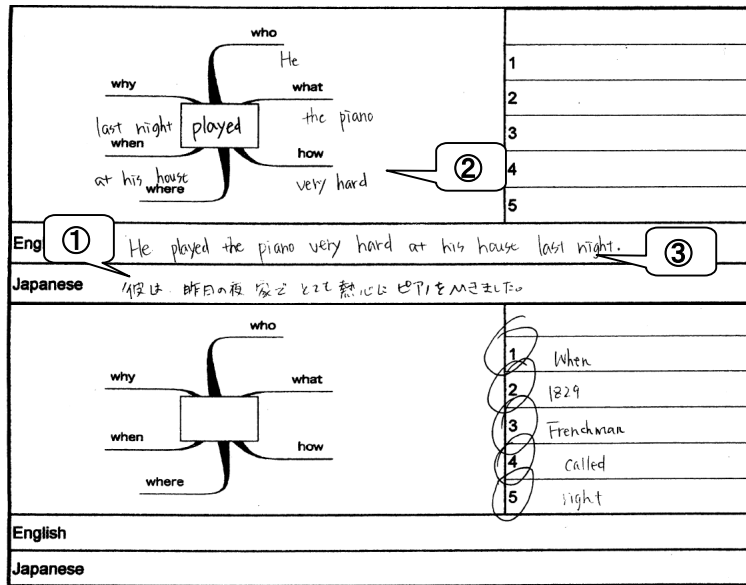 who
He
why
what
last night
played
the piano
when
how
at his house
very hard
where
②
1
2
3
4
5
①
English
He played the piano very hard at his house last night.
③
Japanese
彼は 昨日の夜 家で とても 熱心に ピアノを ひきました。
who
why
what
when
how
where
1 When
2 1829
3 Frenchman
4 called
5 sight
English
Japanese